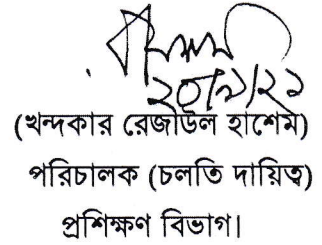 ২০/৯/২১
(খন্দকার রেজাউল হাশেম)
পরিচালক (চলতি দায়িত্ব)
প্রশিক্ষণ বিভাগ।